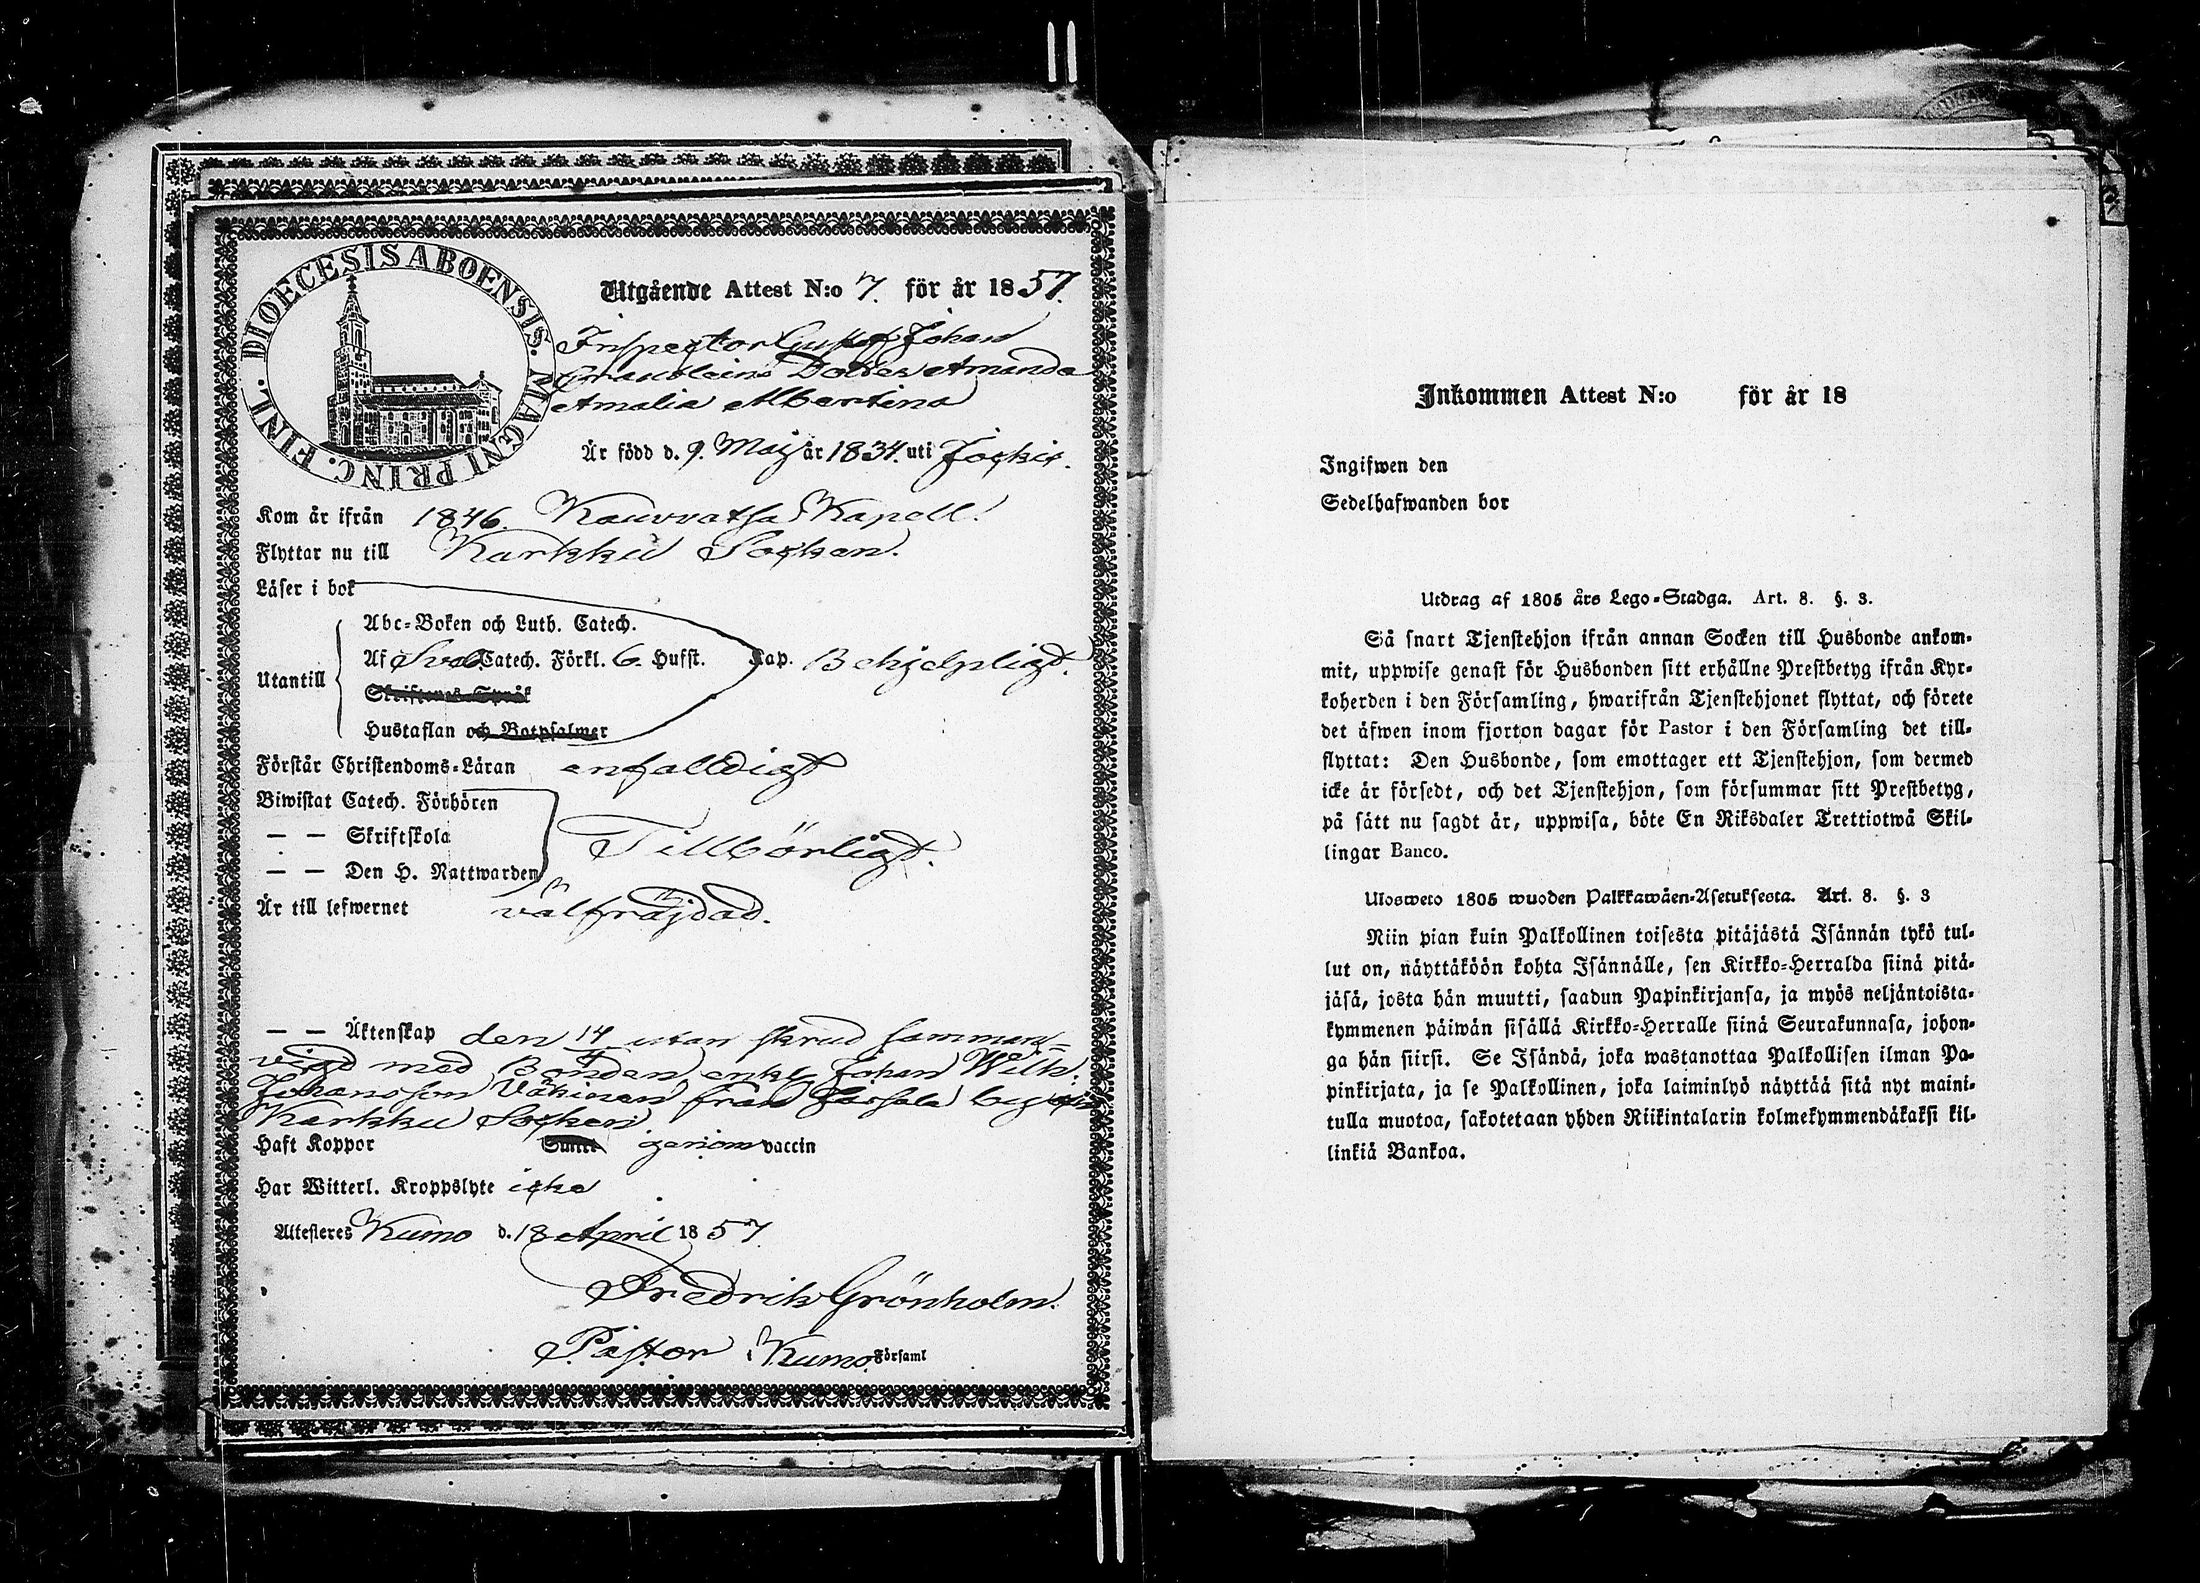 DIOECESIS ABOENSIS. MAGNI PRINC. FINL.
Utgående Attest N:o 7. för år 1857.
Inspector Gustaf Johan
Dotter Amanda
Amalia Albertina
Är född d. 9. Maj år 1834. uti Jockis.
Kom år ifrån 1846. Kauvatsa Kapell.
Flyttar nu till Karkku Socken.
Läser i bok
Abc-Boken och Luth. Catech.
Utantill Af Sveb. Catech. Förkl. 6. Hufst. Kap. Behjelpligt.
Skriftenes Språk
Hustaflan och Botpsalmer
Förstår Christendoms-Läran enfalldigt
Biwistat Catech. Förhören
— — Skriftskola Tillbörligt.
— — Den H. Nattwarden
Är till lefwernet välfräjdad.
— — Äktenskap den 14/4 utan skrud samman-
vigd med Bonden enkl. Johan Wilh.
Johansson Väkinen från by
Karkku Socken.
Haft Koppor Samt genom vaccin
Har Witterl. Kroppslyte icke
Attesteres Kumo d. 18 April 1857.
Fredrik Grönholm.
Pastor i Kumo Församl
Inkommen Attest N:o för år 18
Ingifwen den
Sedelhafwanden bor
Utdrag af 1805 års Lego-Stadga. Art. 8. §. 3.
Så snart Tjenstehjon ifrån annan Socken till Husbonde ankom-
mit, uppwise genast för Husbonden sitt erhållne Prestbetyg ifrån Kyr-
koherden i den Församling, hwarifrån Tjenstehjonet flyttat, och förete
det äfwen inom fjorton dagar för Pastor i den Församling det till-
flyttat: Den Husbonde, som emottager ett Tjenstehjon, som dermed
icke är försedt, och det Tjenstehjon, som försummar sitt Prestbetyg,
på sätt nu sagdt är, uppwisa, böte En Riksdaler Trettiotwå Skil-
lingar Banco.
Ulosweto 1805 wuoden Palkkawäen-Asetuksesta. Art. 8. §. 3
Niin pian kuin Palkollinen toisesta pitäjästä Isännän tykö tul-
lut on, näyttäköön kohta Isännälle, sen Kirkko-Herralda siinä pitä-
jäsä, josta hän muutti, saadun Papinkirjansa, ja myös neljäntoista-
kymmenen päiwän sisällä Kirkko-Herralle siinä Seurakunnasa, johon-
ga hän siirsi. Se Isändä, joka wastanottaa Palkollisen ilman Pa-
pinkirjata, ja se Palkollinen, joka laiminlyö näyttää sitä nyt maini-
tulla muotoa, sakotetaan yhden Riikintalarin kolmekymmendäkaksi kil-
linkiä Bankoa.